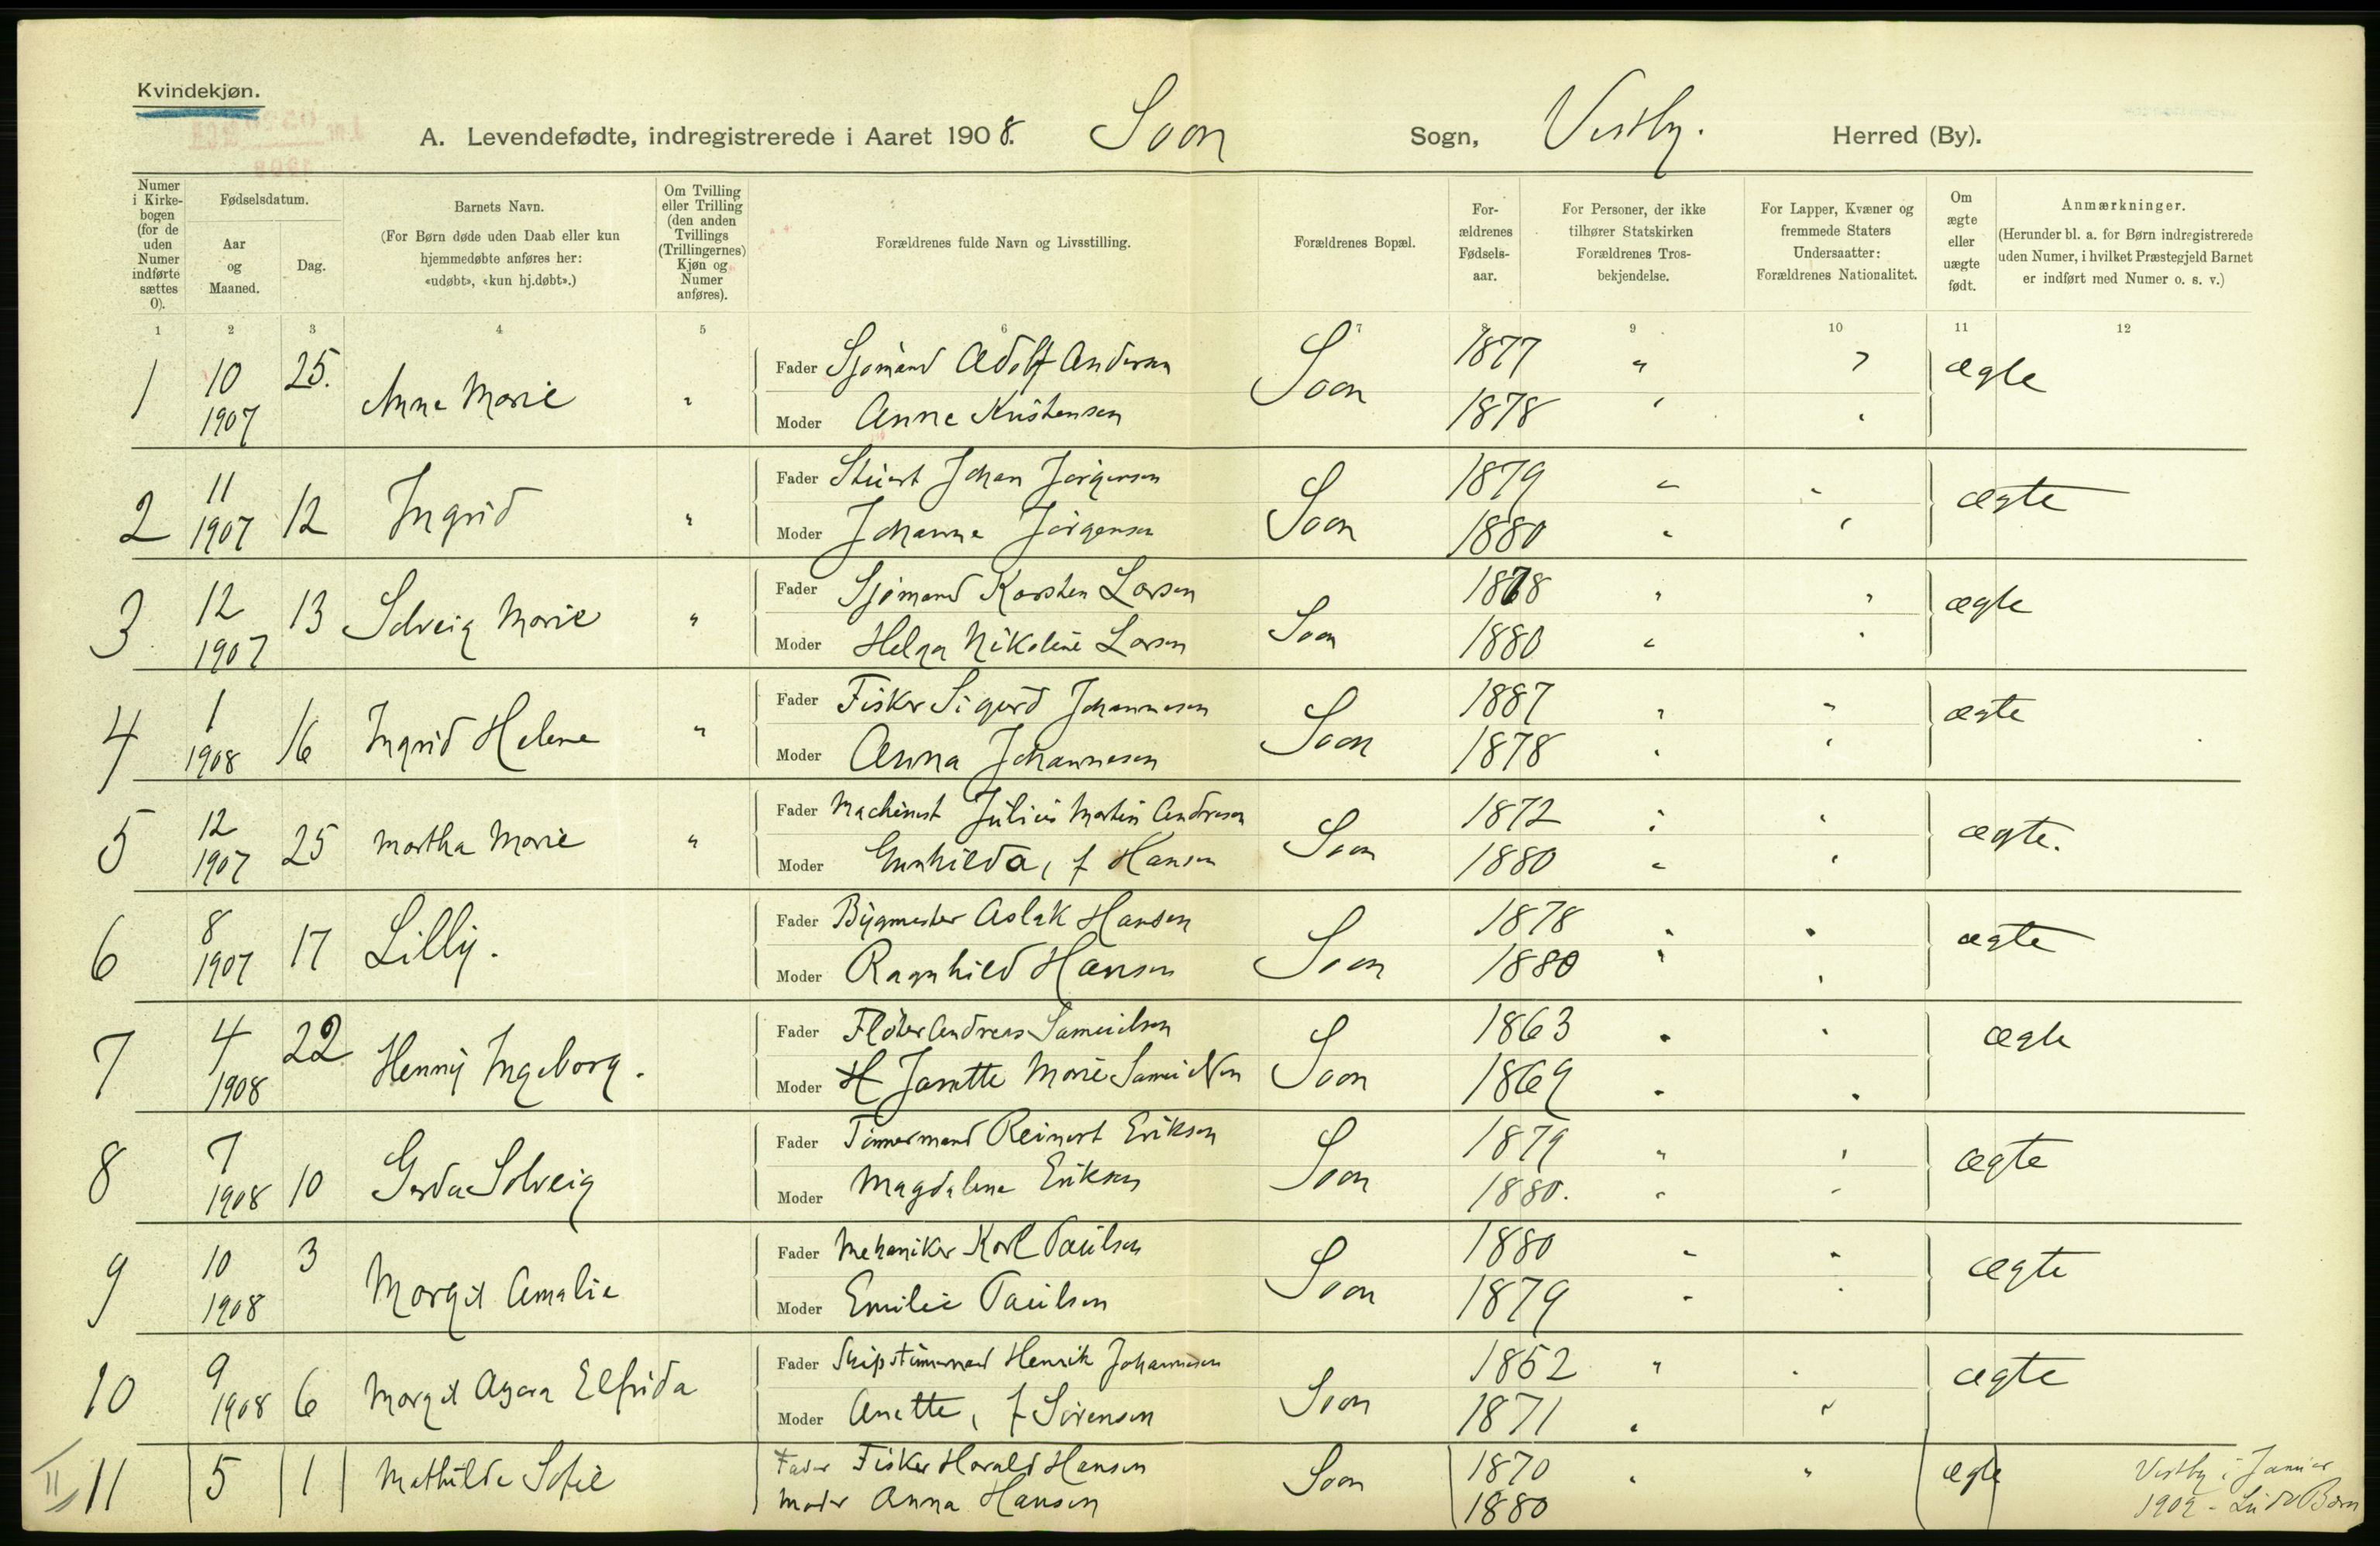 Kvindekjøn.
A. Levendefødte, indregistrerede i Aaret 1908. Soon Sogn, Vestby. Herred (By).
Numer i Kirkebogen (for de uden Numer indførte sættes 0).
Fødselsdatum.
Aar og Maaned.
Dag.
Barnets Navn.
(For Børn døde uden Daab eller kun hjemmedøbte anføres her: «udøbt», «kun hj.døbt».)
Om Tvilling eller Trilling (den anden Tvillings (Trillingernes) Kjøn og Numer anføres).
Forældrenes fulde Navn og Livsstilling.
Forældrenes Bopæl.
Forældrenes Fødselsaar.
For Personer, der ikke tilhører Statskirken Forældrenes Trosbekjendelse.
For Lapper, Kvæner og fremmede Staters Undersaatter: Forældrenes Nationalitet.
Om ægte eller uægte født.
Anmærkninger.
(Herunder bl. a. for Børn indregistrerede uden Numer, i hvilket Præstegjeld Barnet er indført med Numer o. s. v.)
1 2 3 4 5 6 7 8 9 10 11 12
1 10 1907 25. Anna Marie " Fader Sjømand Adolf Andersen Soon 1877 " " ægte
Moder Anne Kristensen 1878 " "
2 11 1907 12 Ingrid " Fader Stuert Johan Jørgensen Soon 1879 " " ægte
Moder Johanne Jørgensen 1880 " "
3 12 1907 13 Solveig Marie " Fader Sjømand Karsten Larsen Soon 1878 " " ægte
Moder Helga Nikoline Larsen 1880 " "
4 1 1908 16 Ingrid Helene " Fader Fisker Sigurd Johannesen Soon 1887 " " ægte
Moder Anna Johannesen 1878 " "
5 12 1907 25 Martha Marie " Fader Machinist Julius Martin Andresen Soon 1872 " " ægte.
Moder Gunhilda, f Hansen 1880 " "
6 8 1907 17 Lilly. Fader Bygmester Aslak Hansen Soon 1878 " " ægte
Moder Ragnhild Hansen 1880 " "
7 4 1908 22 Henny Ingeborg. Fader Fløter Andreas Samuelsen Soon 1863 " " ægte
Moder H Janette Marie Samuelsen 1869 " "
8 7 1908 10 Gerda Solveig Fader Tømmermand Reinert Eriksen Soon 1879 " " ægte
Moder Magdalene Eriksen 1880. " "
9 10 1908 3 Margit Amalie Fader Mekaniker Karl Paulsen Soon 1880 " " ægte
Moder Emilie Paulsen 1879 " "
10 9 1908 6 Margit Agara Elfrida Fader Skipstømmermand Henrik Johannesen Soon 1852 " " ægte
Moder Anette, f Sørensen 1871 " "
II 11 5 1 Mathilde Sofie Fader Fisker Harald Hansen Soon 1870 " " ægte Vestby i Januar
Moder Anna Hansen 1880 1909